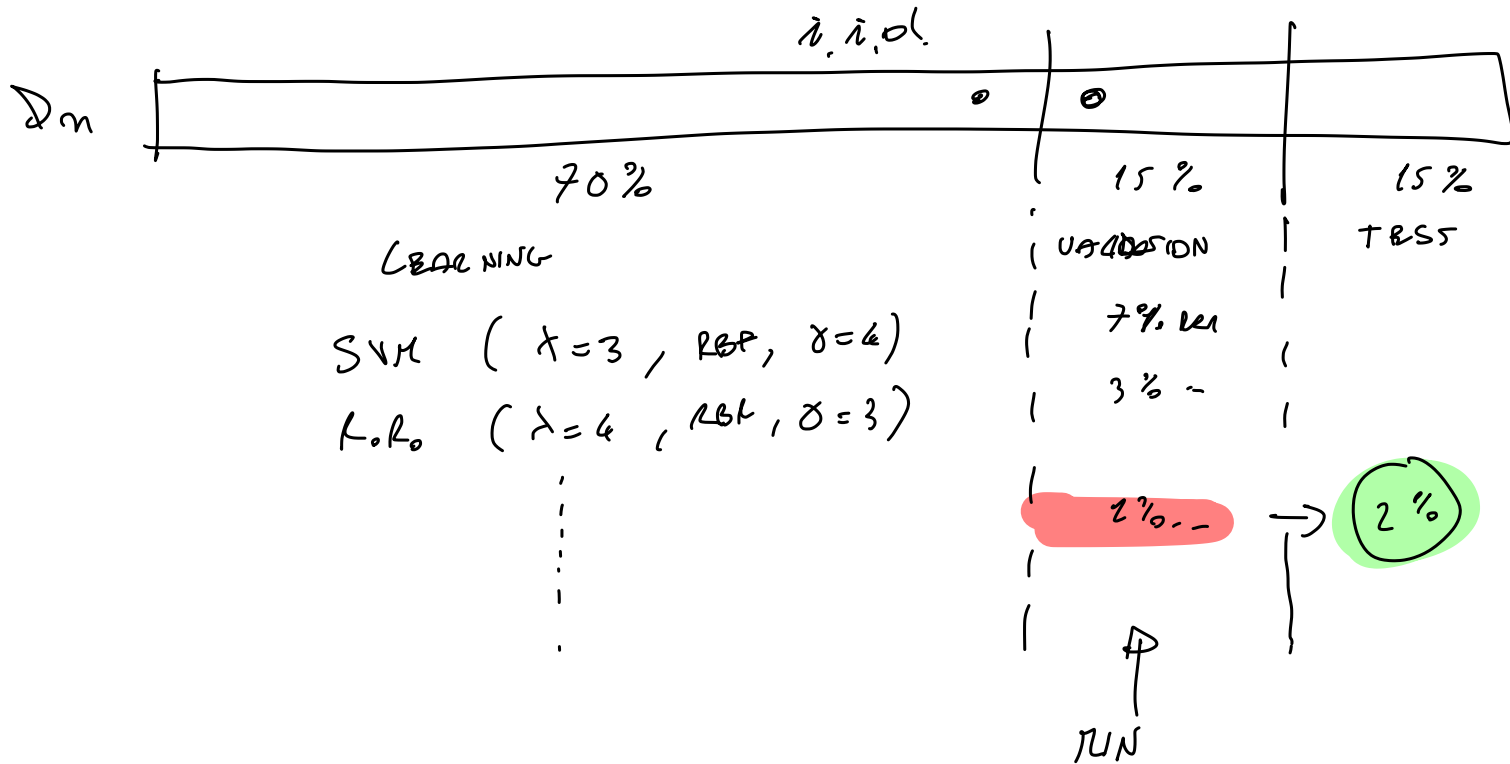 i.i.d.
Dn
70% 15% 15%
LEARNING VALIDATION TEST
7% err
SVM ( λ=3 , RBF, γ=4)
3% -
R.R. ( λ=4 , RBF, γ=3)
1%.. → 2%
MIN